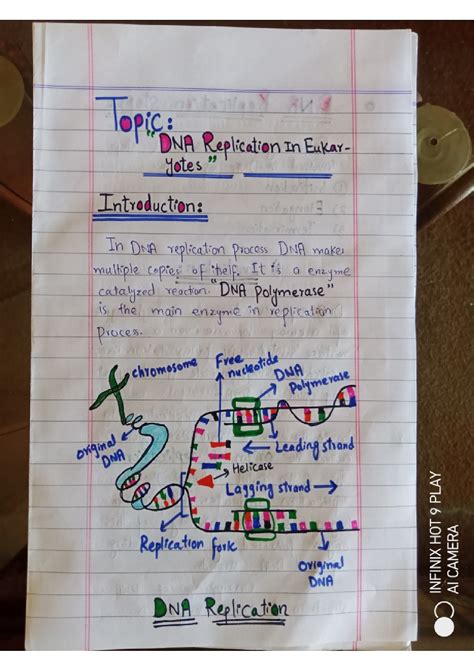 Topic:
"DNA Replication In Eukar-
yotes"
Introduction:
In DNA replication process DNA makes
multiple copies of itself. It is a enzyme
catalyzed reaction. "DNA Polymerase"
is the main enzyme in replication
process.
chromosome
Free
nucleotide
DNA
Polymerase
original
DNA
Leading strand
Helicase
Lagging strand →
Replication fork
original
DNA
DNA Replication
INFINIX HOT 9 PLAY
AI CAMERA